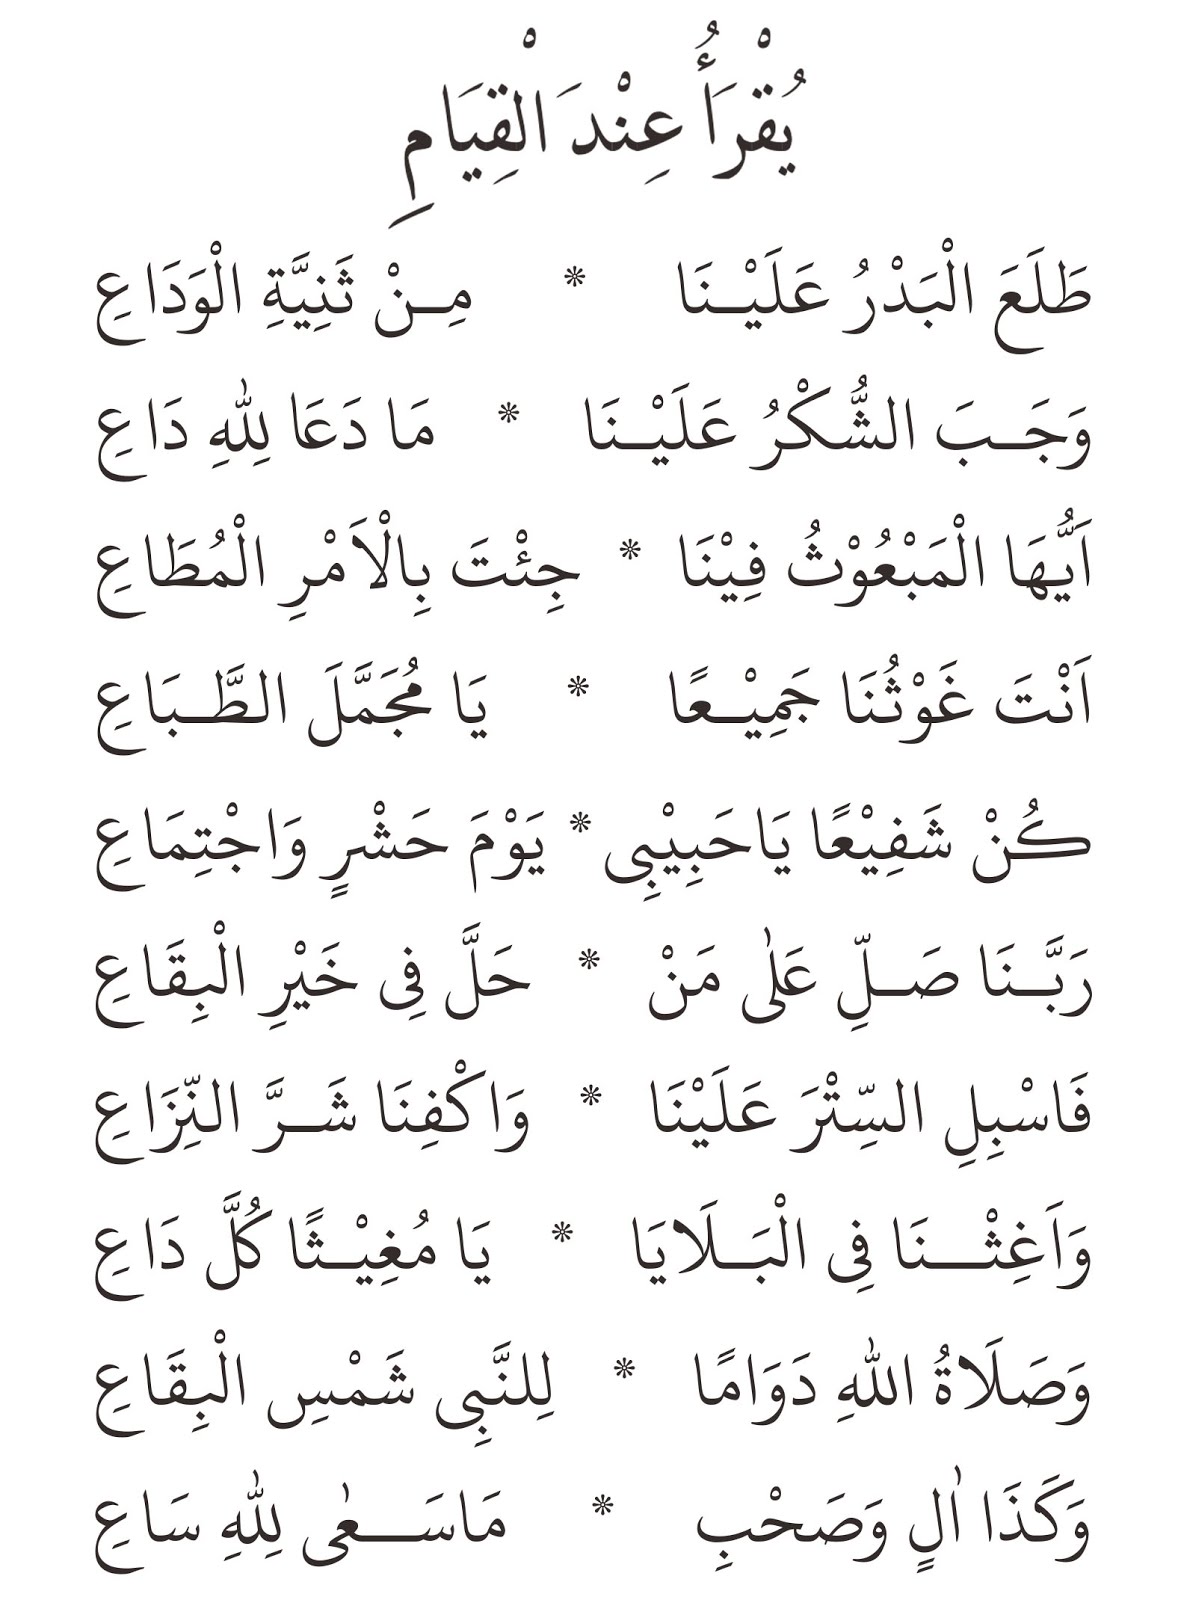 يُقْرَأُ عِنْدَ الْقِيَامِ
طَلَعَ الْبَدْرُ عَلَيْـنَا * مِـنْ ثَنِيَّةِ الْوَدَاعِ
وَجَـبَ الشُّكْرُ عَلَيْـنَا * مَا دَعَا لِلّٰهِ دَاعِ
اَيُّهَا الْمَبْعُوْثُ فِيْنَا * جِئْتَ بِالْاَمْرِ الْمُطَاعِ
اَنْتَ غَوْثُنَا جَمِيْـعًا * يَا مُجَمَّلَ الطَّـبَاعِ
كُنْ شَفِيْعًا يَاحَبِيْبِى * يَوْمَ حَشْرٍ وَاجْتِمَاعِ
رَبَّـنَا صَـلِّ عَلٰى مَنْ * حَلَّ فِى خَيْرِ الْبِقَاعِ
فَاسْبِلِ السِّتْرَ عَلَيْنَا * وَاكْفِنَا شَـرَّ النِّزَاعِ
وَاَغِثْـــنَا فِى الْبَـلَايَا * يَا مُغِيْـثًا كُلَّ دَاعِ
وَصَلَاةُ اللّٰهِ دَوَامًا * لِلنَّبِى شَمْسِ الْبِقَاعِ
وَكَذَا اٰلٍ وَصَحْبِ * مَاسَـــعٰى لِلّٰهِ سَاعِ